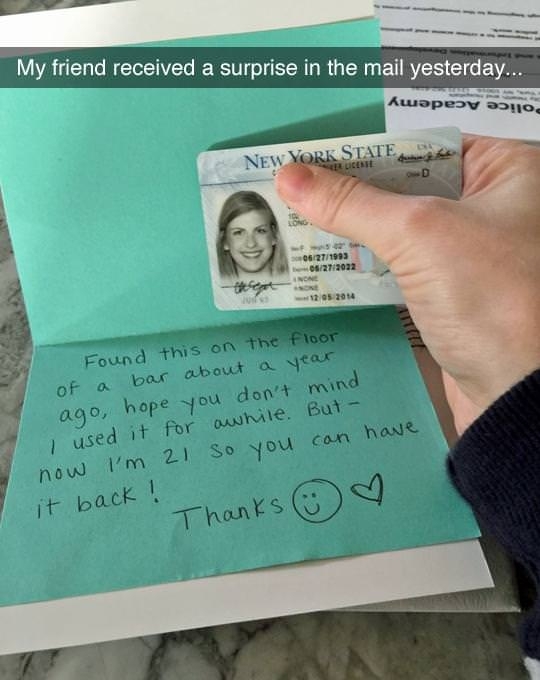 My friend received a surprise in the mail yesterday...
Police Academy
NEW YORK STATE USA
DRIVER LICENSE
D
F 5'-02"
06/27/1993
06/27/2022
NONE
NONE
12/05/2014
JUN 93
Found this on the floor
of a bar about a year
ago, hope you don't mind
I used it for awhile. But -
now I'm 21 so you can have
it back!
Thanks